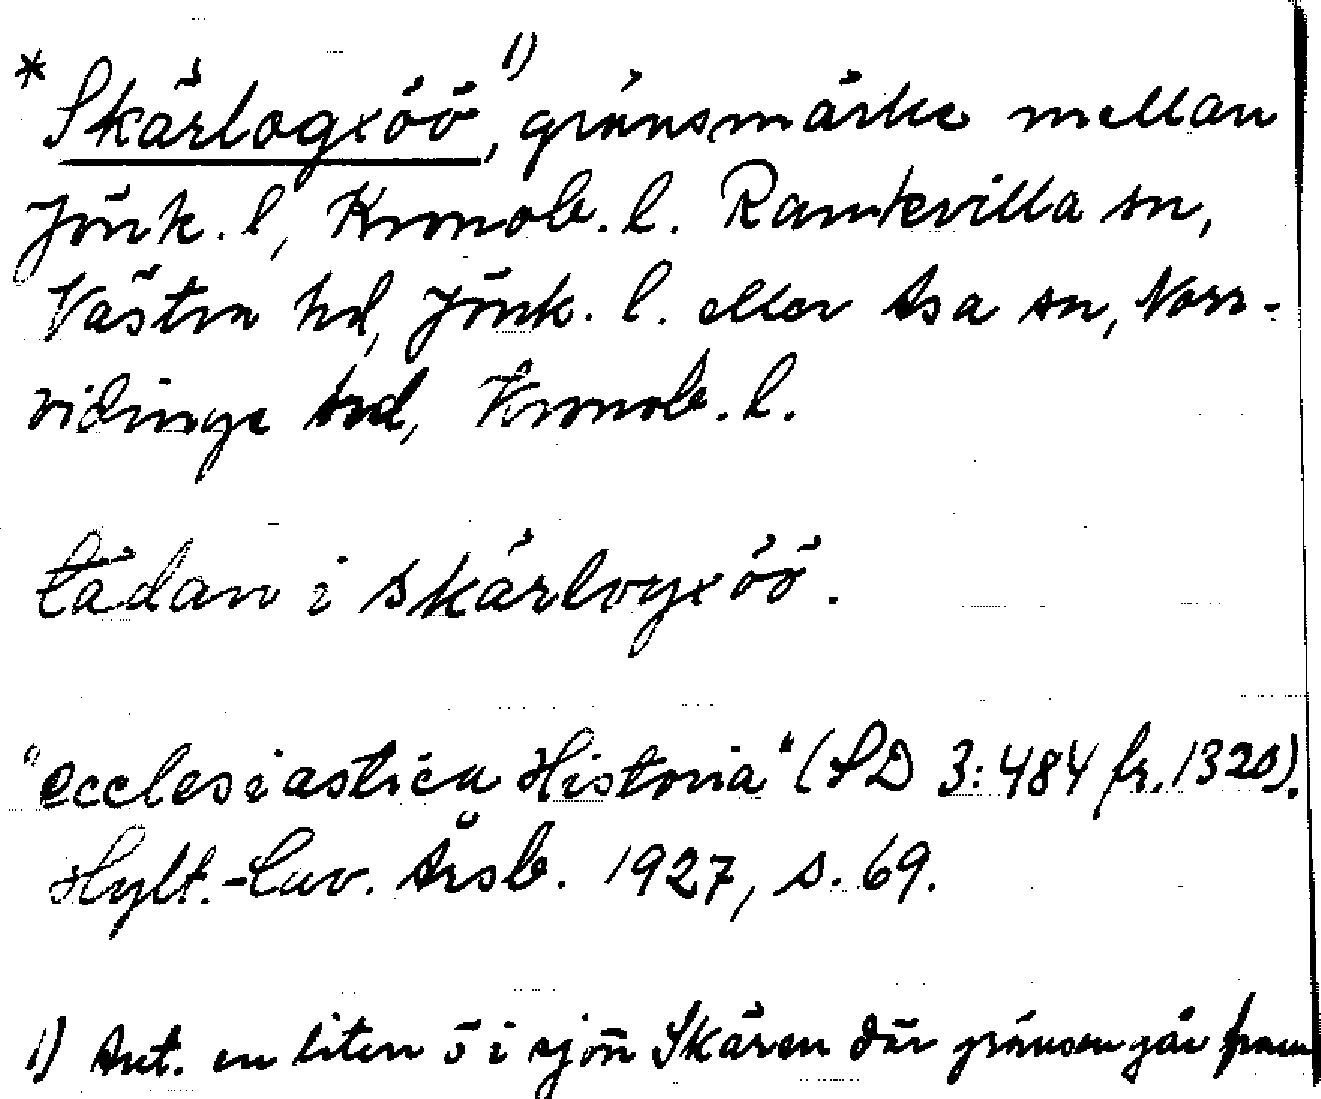 * Skärlogxöö 1), gränsmärke mellan
Jönk. l, Kronob. l. Ramkvilla sn,
Västra hd, Jönk. l. eller Asa sn, Norr-
vidinge hd, Kronob. l.
tädan i skärlogxöö.
"ecclesiastica Historia" (SD 3:484 fr. 1320).
Hylt.-Cav. Årsb. 1927, s. 69.
1) Ant. en liten ö i sjön Skären där gränsen går fram